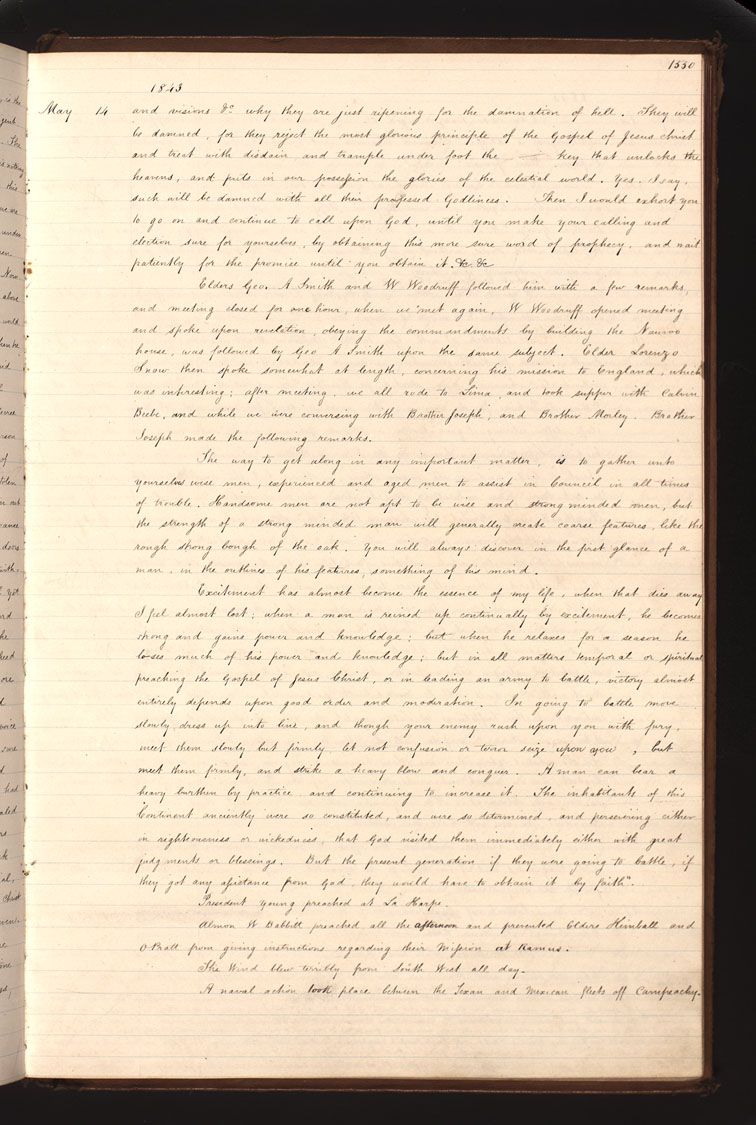 1550
1843
May 14 and visions &c. why they are just ripening for the damnation of hell. They will
be damned, for they reject the most glorious principle of the Gospel of Jesus Christ
and treat with disdain and trample under foot the key that unlocks the
heavens, and puts in our possession the glories of the celestial world. Yes, I say,
such will be damned with all their professed Godliness. Then I would exhort you
to go on and continue to call upon God, until you make your calling and
election sure for yourselves, by obtaining this more sure word of prophecy, and wait
patiently for the promise until you obtain it. &c. &c
Elders Geo. A Smith and W Woodruff followed him with a few remarks,
and meeting closed for one hour, when we met again, W Woodruff opened meeting
and spoke upon revelation, obeying the commandments by building the Nauvoo
house, was followed by Geo A Smith upon the same subject. Elder Lorenzo
Snow then spoke somewhat at length, concerning his mission to England, which
was interesting; after meeting, we all rode to Lima, and took supper with Calvin
Beebe, and while we were conversing with Brother Joseph, and Brother Morley. Brother
Joseph made the following remarks.
The way to get along in any important matter, is to gather unto
yourselves wise men, experienced and aged men to assist in Council in all times
of trouble. Handsome men are not apt to be wise and strong minded men, but
the strength of a strong minded man will generally create coarse features, like the
rough strong bough of the oak. You will always discover in the first glance of a
man, in the outlines of his features, something of his mind.
Excitement has almost become the essence of my life, when that dies away
I feel almost lost; when a man is reined up continually by excitement, he becomes
strong and gains power and knowledge; but when he relaxes for a season he
loses much of his power and knowledge; but in all matters temporal or spiritual
preaching the Gospel of Jesus Christ, or in leading an army to battle, victory almost
entirely depends upon good order and moderation. In going to battle move
slowly, dress up into line, and though your enemy rush upon you with fury,
meet them slowly but firmly let not confusion or terror seize upon you, but
meet them firmly, and strike a heavy blow and conquer. A man can bear a
heavy burthen by practice and continuing to increase it. The inhabitants of this
Continent anciently were so constituted, and were so determined, and persevering either
in righteousness or wickedness, that God visited them immediately either with great
judgments or blessings. But the present generation if they were going to battle, if
they got any assistance from God, they would have to obtain it by faith".
President Young preached at La Harpe.
Almon W Babbitt preached all the afternoon and prevented Elders Kimball and
O. Pratt from giving instructions regarding their Mission at Ramus.
The Wind blew terribly from South West all day.
A naval action took place between the Texan and Mexican fleets off Campeachy.